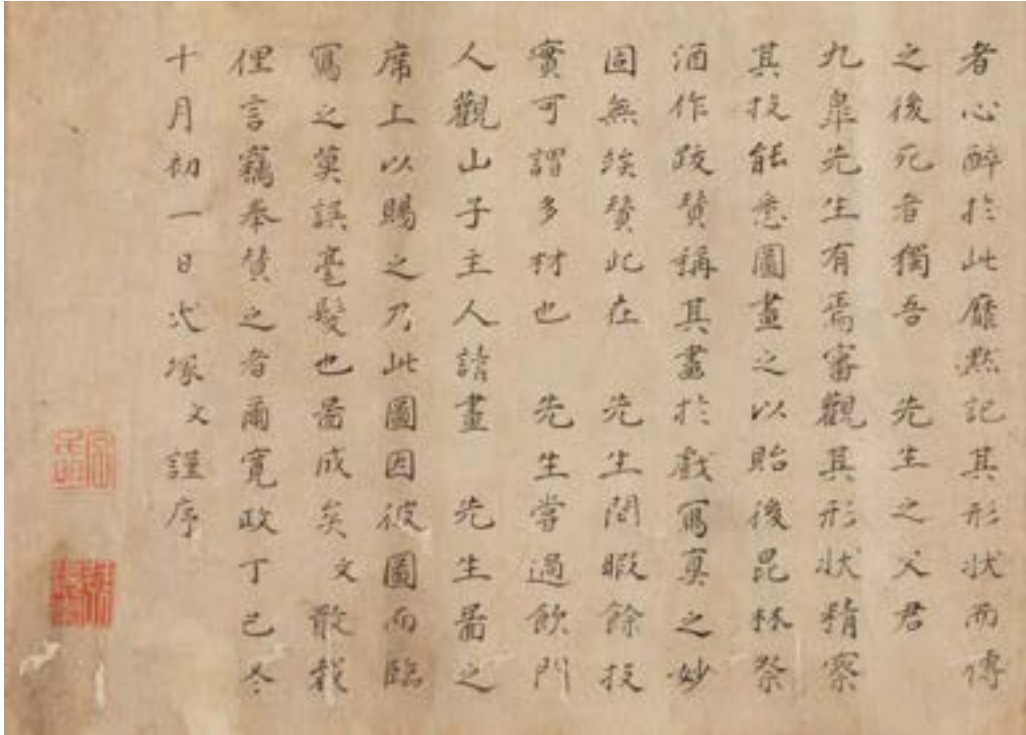 者心醉於此靡黙記其形状而傳
之後死者獨吾 先生之父君
九皐先生有焉審觀其形状精察
其技能悉圖畫之以貽後昆林祭
酒作跋賛稱其畫於戲寫真之妙
固無俟賛此在 先生間暇餘技
實可謂多材也 先生嘗過飲門
人觀山子主人請畫 先生啚之
席上以賜之乃此圖因彼圖而臨
寫之莫誤毫髮也啚成矣 文敢裁
俚言竊奉賛之者爾寛政丁巳冬
十月初一日犬塚 文謹序